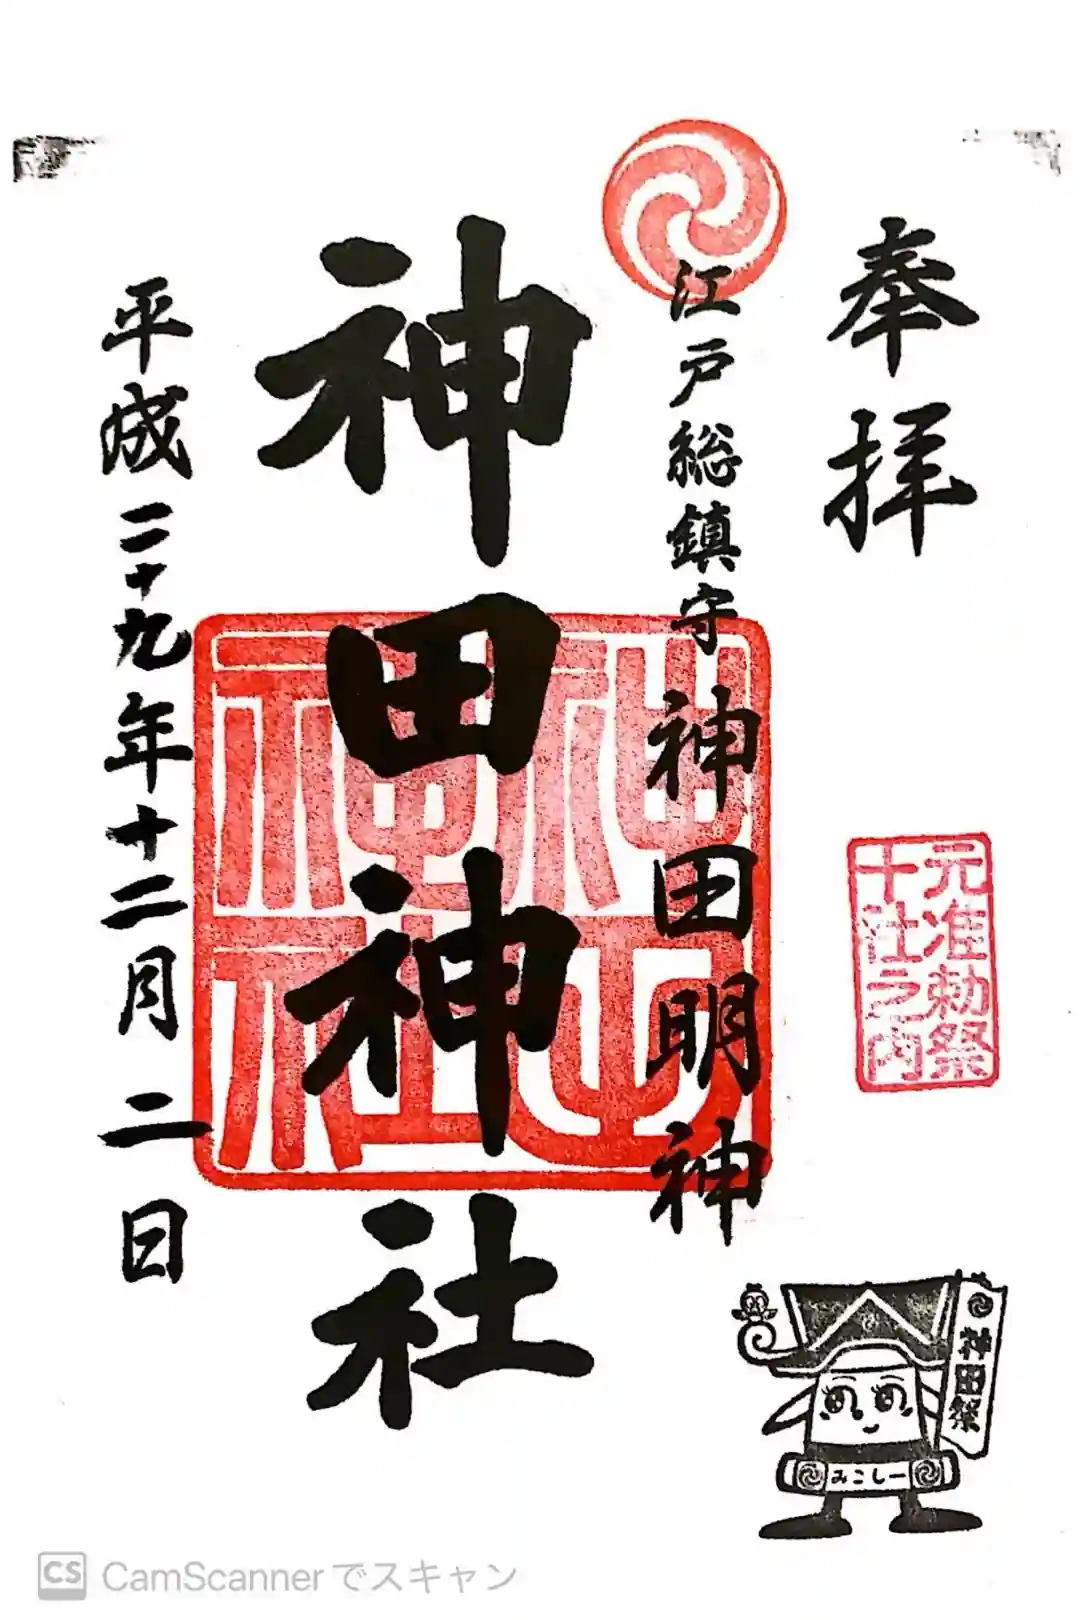 奉拝
元准勅祭
十社之内
江戸総鎮守 神田明神
神田神社
平成二十九年十二月二日
神田祭
みこしー
CS CamScannerでスキャン